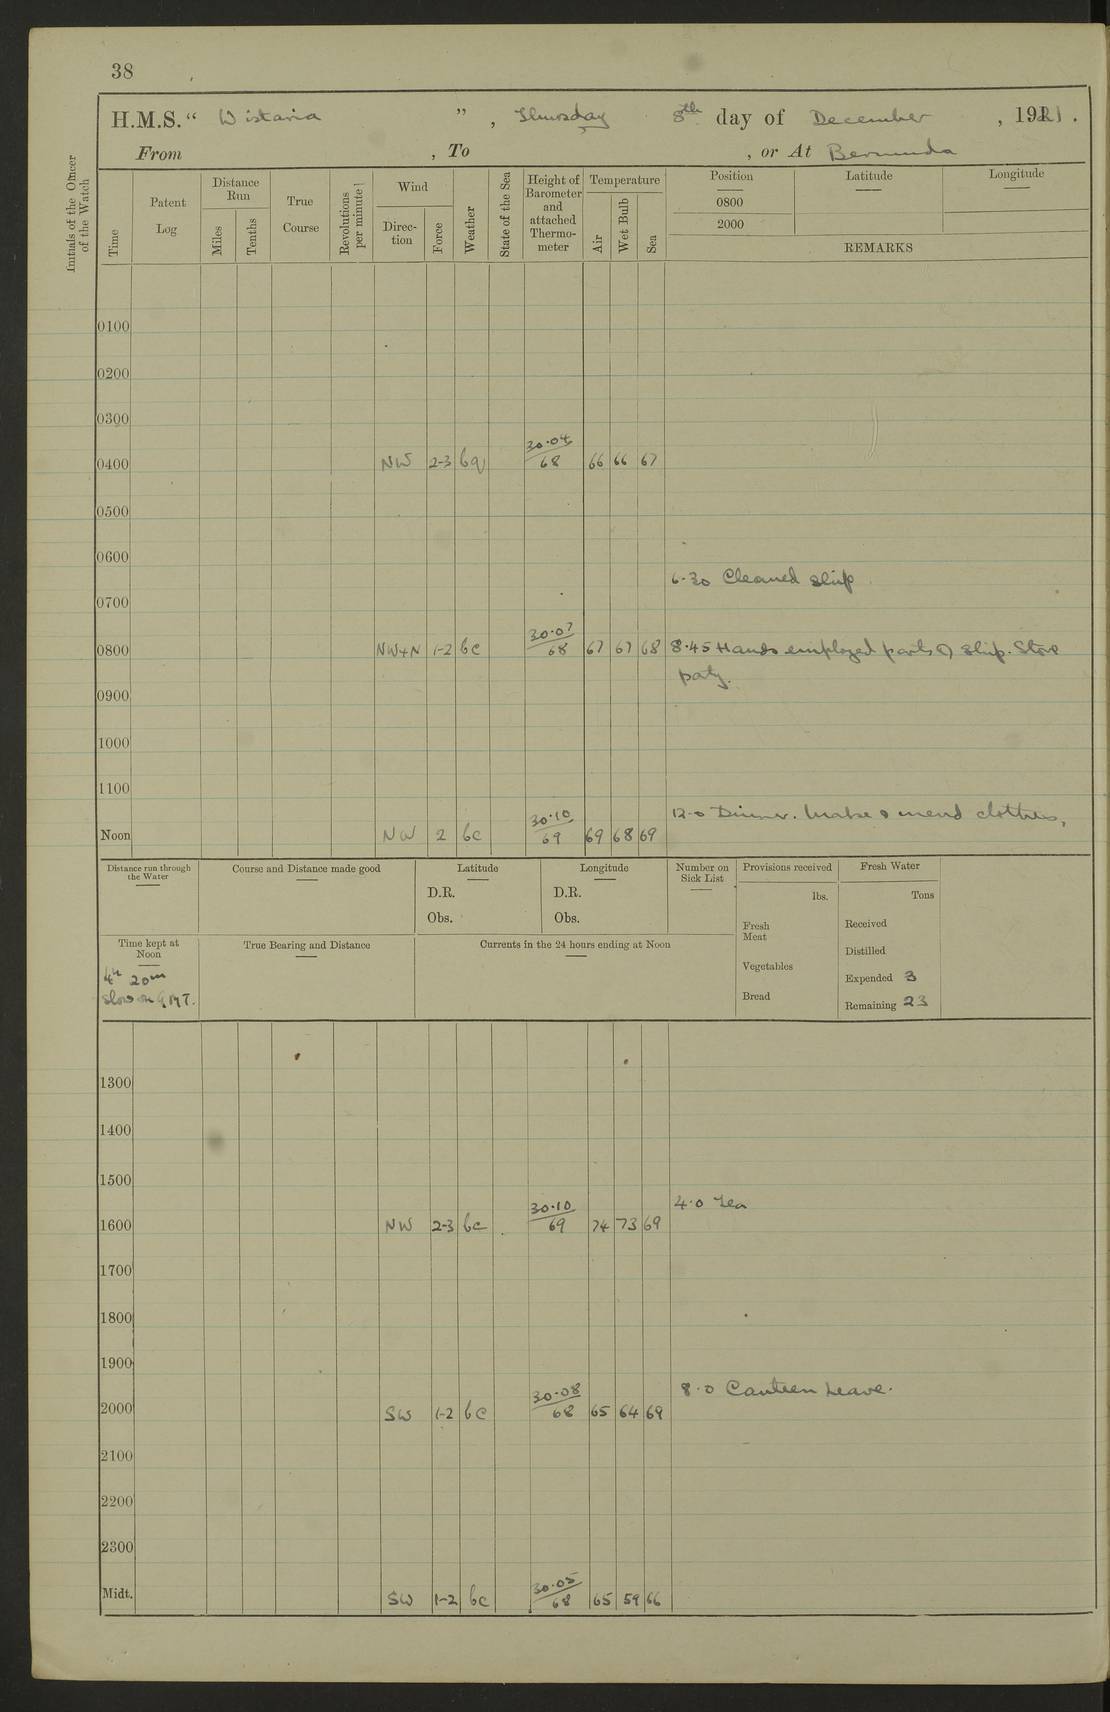 38
H.M.S. “ Wistaria ” , Thursday 8th day of December , 1921 .
From , To , or At Bermuda
Initials of the Officer of the Watch
Time
Patent Log
Distance Run
Miles
Tenths
True Course
Revolutions per minute
Wind
Direc-tion
Force
Weather
State of the Sea
Height of Barometer and attached Thermo-meter
Temperature
Air
Wet Bulb
Sea
Position Latitude Longitude
0800
2000
REMARKS
0100
0200
0300
0400 NW 2-3 bq 30.04/68 66 66 67
0500
0600
6.30 Cleaned ship
0700
0800 NW+N 1-2 bc 30.07/68 67 67 68 8.45 Hands employed parts of ship. Store
party.
0900
1000
1100
12.0 Dinner. Make & mend clothes,
Noon NW 2 bc 30.10/69 69 68 69
Distance run through the Water
Course and Distance made good
Latitude
D.R.
Obs.
Longitude
D.R.
Obs.
Number on Sick List
Provisions received
lbs.
Fresh Meat
Vegetables
Bread
Fresh Water
Tons
Received
Distilled
Expended 3
Remaining 23
Time kept at Noon
4h 20m
slow on G.M.T.
True Bearing and Distance
Currents in the 24 hours ending at Noon
1300
1400
1500
4.0 Tea
1600 NW 2-3 bc 30.10/69 74 73 69
1700
1800
1900
8.0 Canteen Leave.
2000 SW 1-2 bc 30.08/68 65 64 69
2100
2200
2300
Midt. SW 1-2 bc 30.05/68 65 59 66